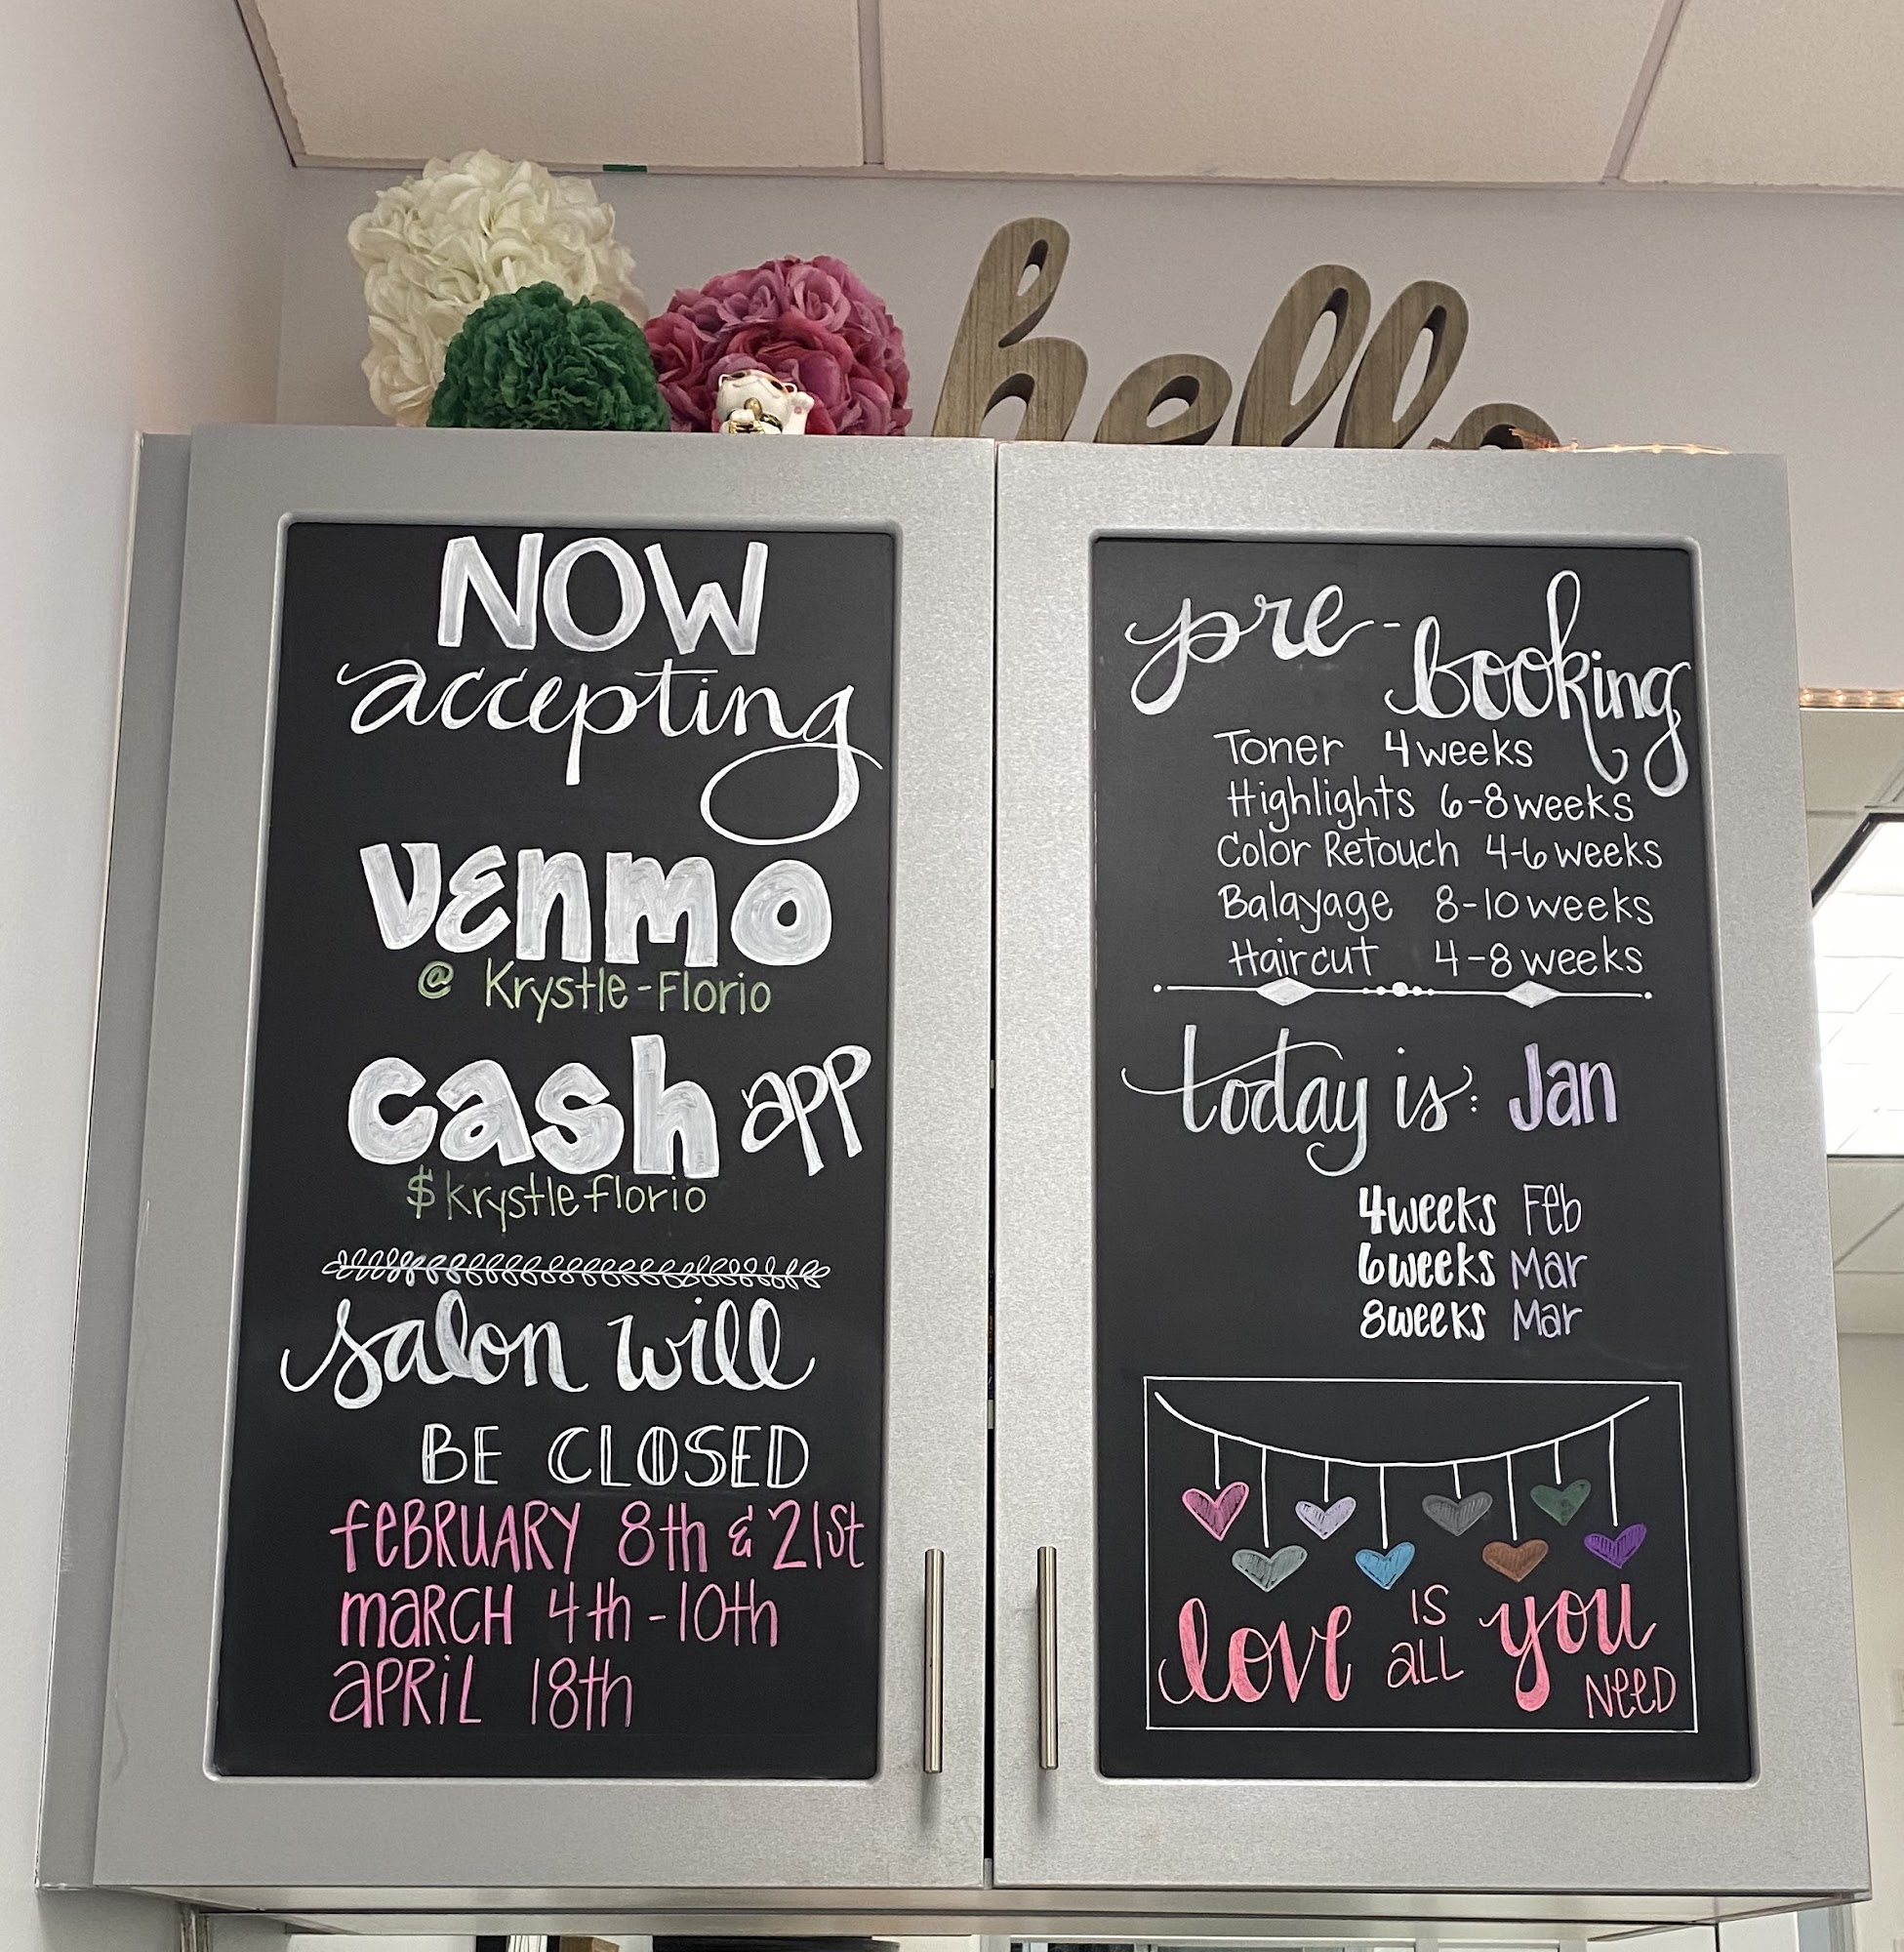 hello
NOW
accepting
venmo
@ Krystle-Florio
cash app
$krystleflorio
salon will
BE CLOSED
FEBRUARY 8th & 21st
MARCH 4th-10th
APRIL 18th
pre-
booking
Toner 4 weeks
Highlights 6-8 weeks
Color Retouch 4-6 weeks
Balayage 8-10 weeks
Haircut 4-8 weeks
today is: Jan
4 weeks Feb
6 weeks Mar
8 weeks Mar
love IS ALL you NEED